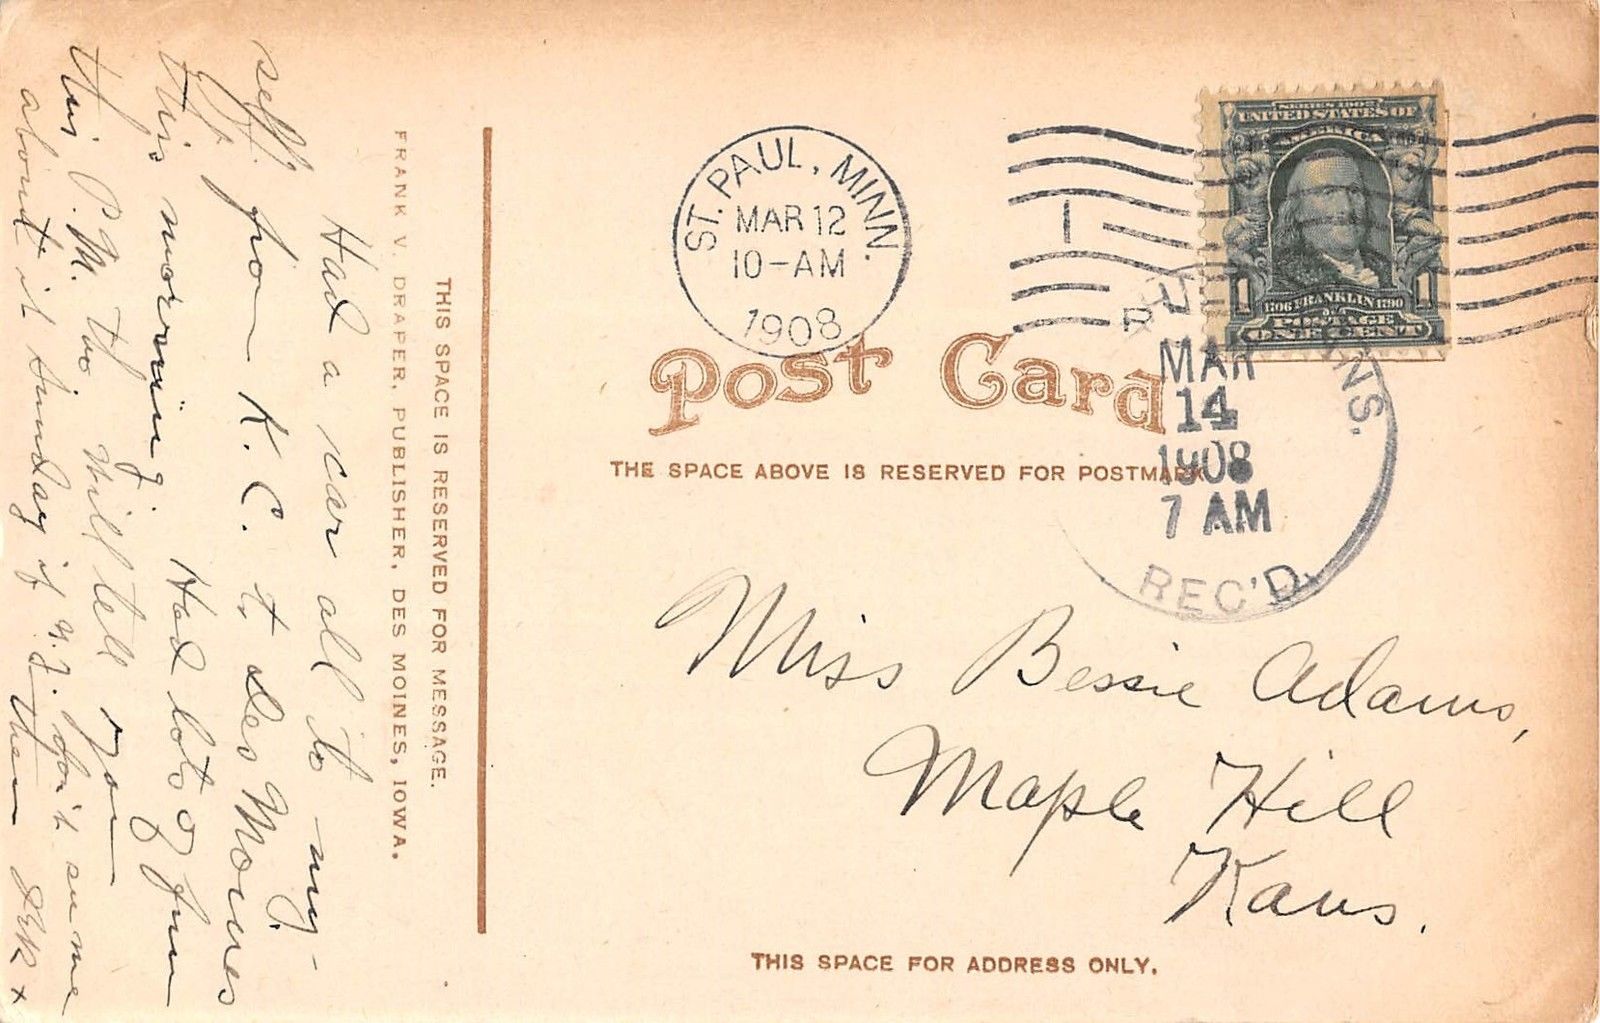 ST. PAUL, MINN.
MAR 12
10-AM
1908
1
SERIES 1902
UNITED STATES OF
AMERICA
1 1
1706 FRANKLIN 1790
POSTAGE
ONE CENT
Post Card
THE SPACE ABOVE IS RESERVED FOR POSTMARK
MAR
14
1908
7 AM
REC'D.
Miss Bessie Adams,
Maple Hill
Kans.
THIS SPACE FOR ADDRESS ONLY.
THIS SPACE IS RESERVED FOR MESSAGE.
FRANK V. DRAPER, PUBLISHER, DES MOINES, IOWA.
Had a car all to my-
self from K.C. to Des Moines
this morning. Had lots of fun
this P.M. too will tell you
about it Sunday if don't see me then